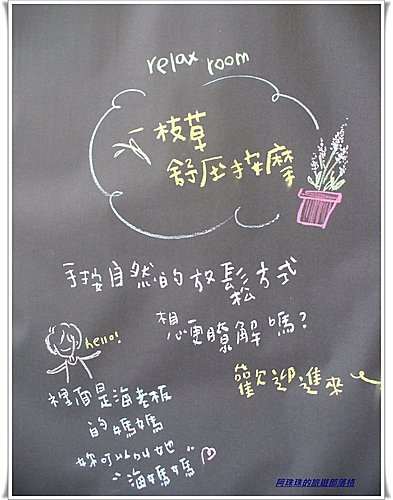 relax room
一枝草
舒压按摩
手按自然的放鬆方式
想更瞭解嗎?
hello!
歡迎進來
裡面是海老板
的媽媽
妳可以叫她
"海媽媽"
阿珠珠的旅遊部落格